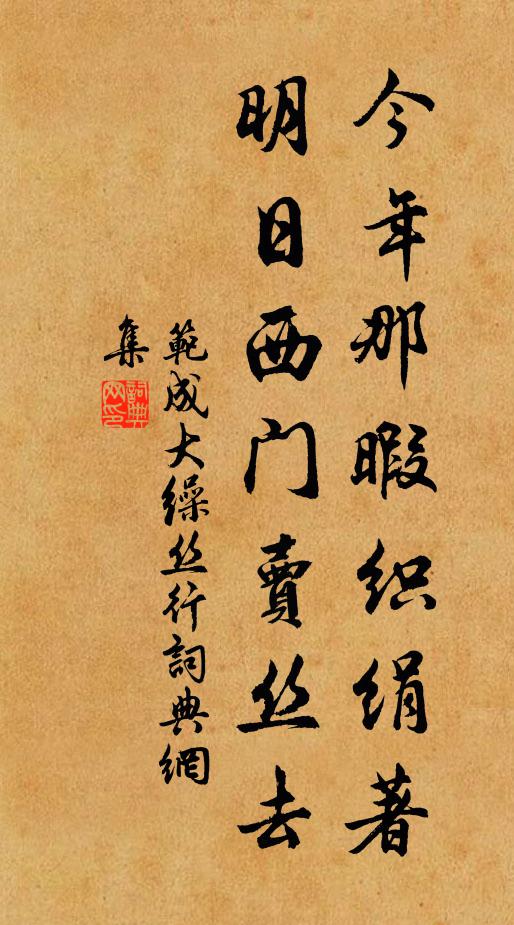 今年那暇织绢著
明日西门賣丝去
範成大繰丝行詞典網
集
詞典
网印